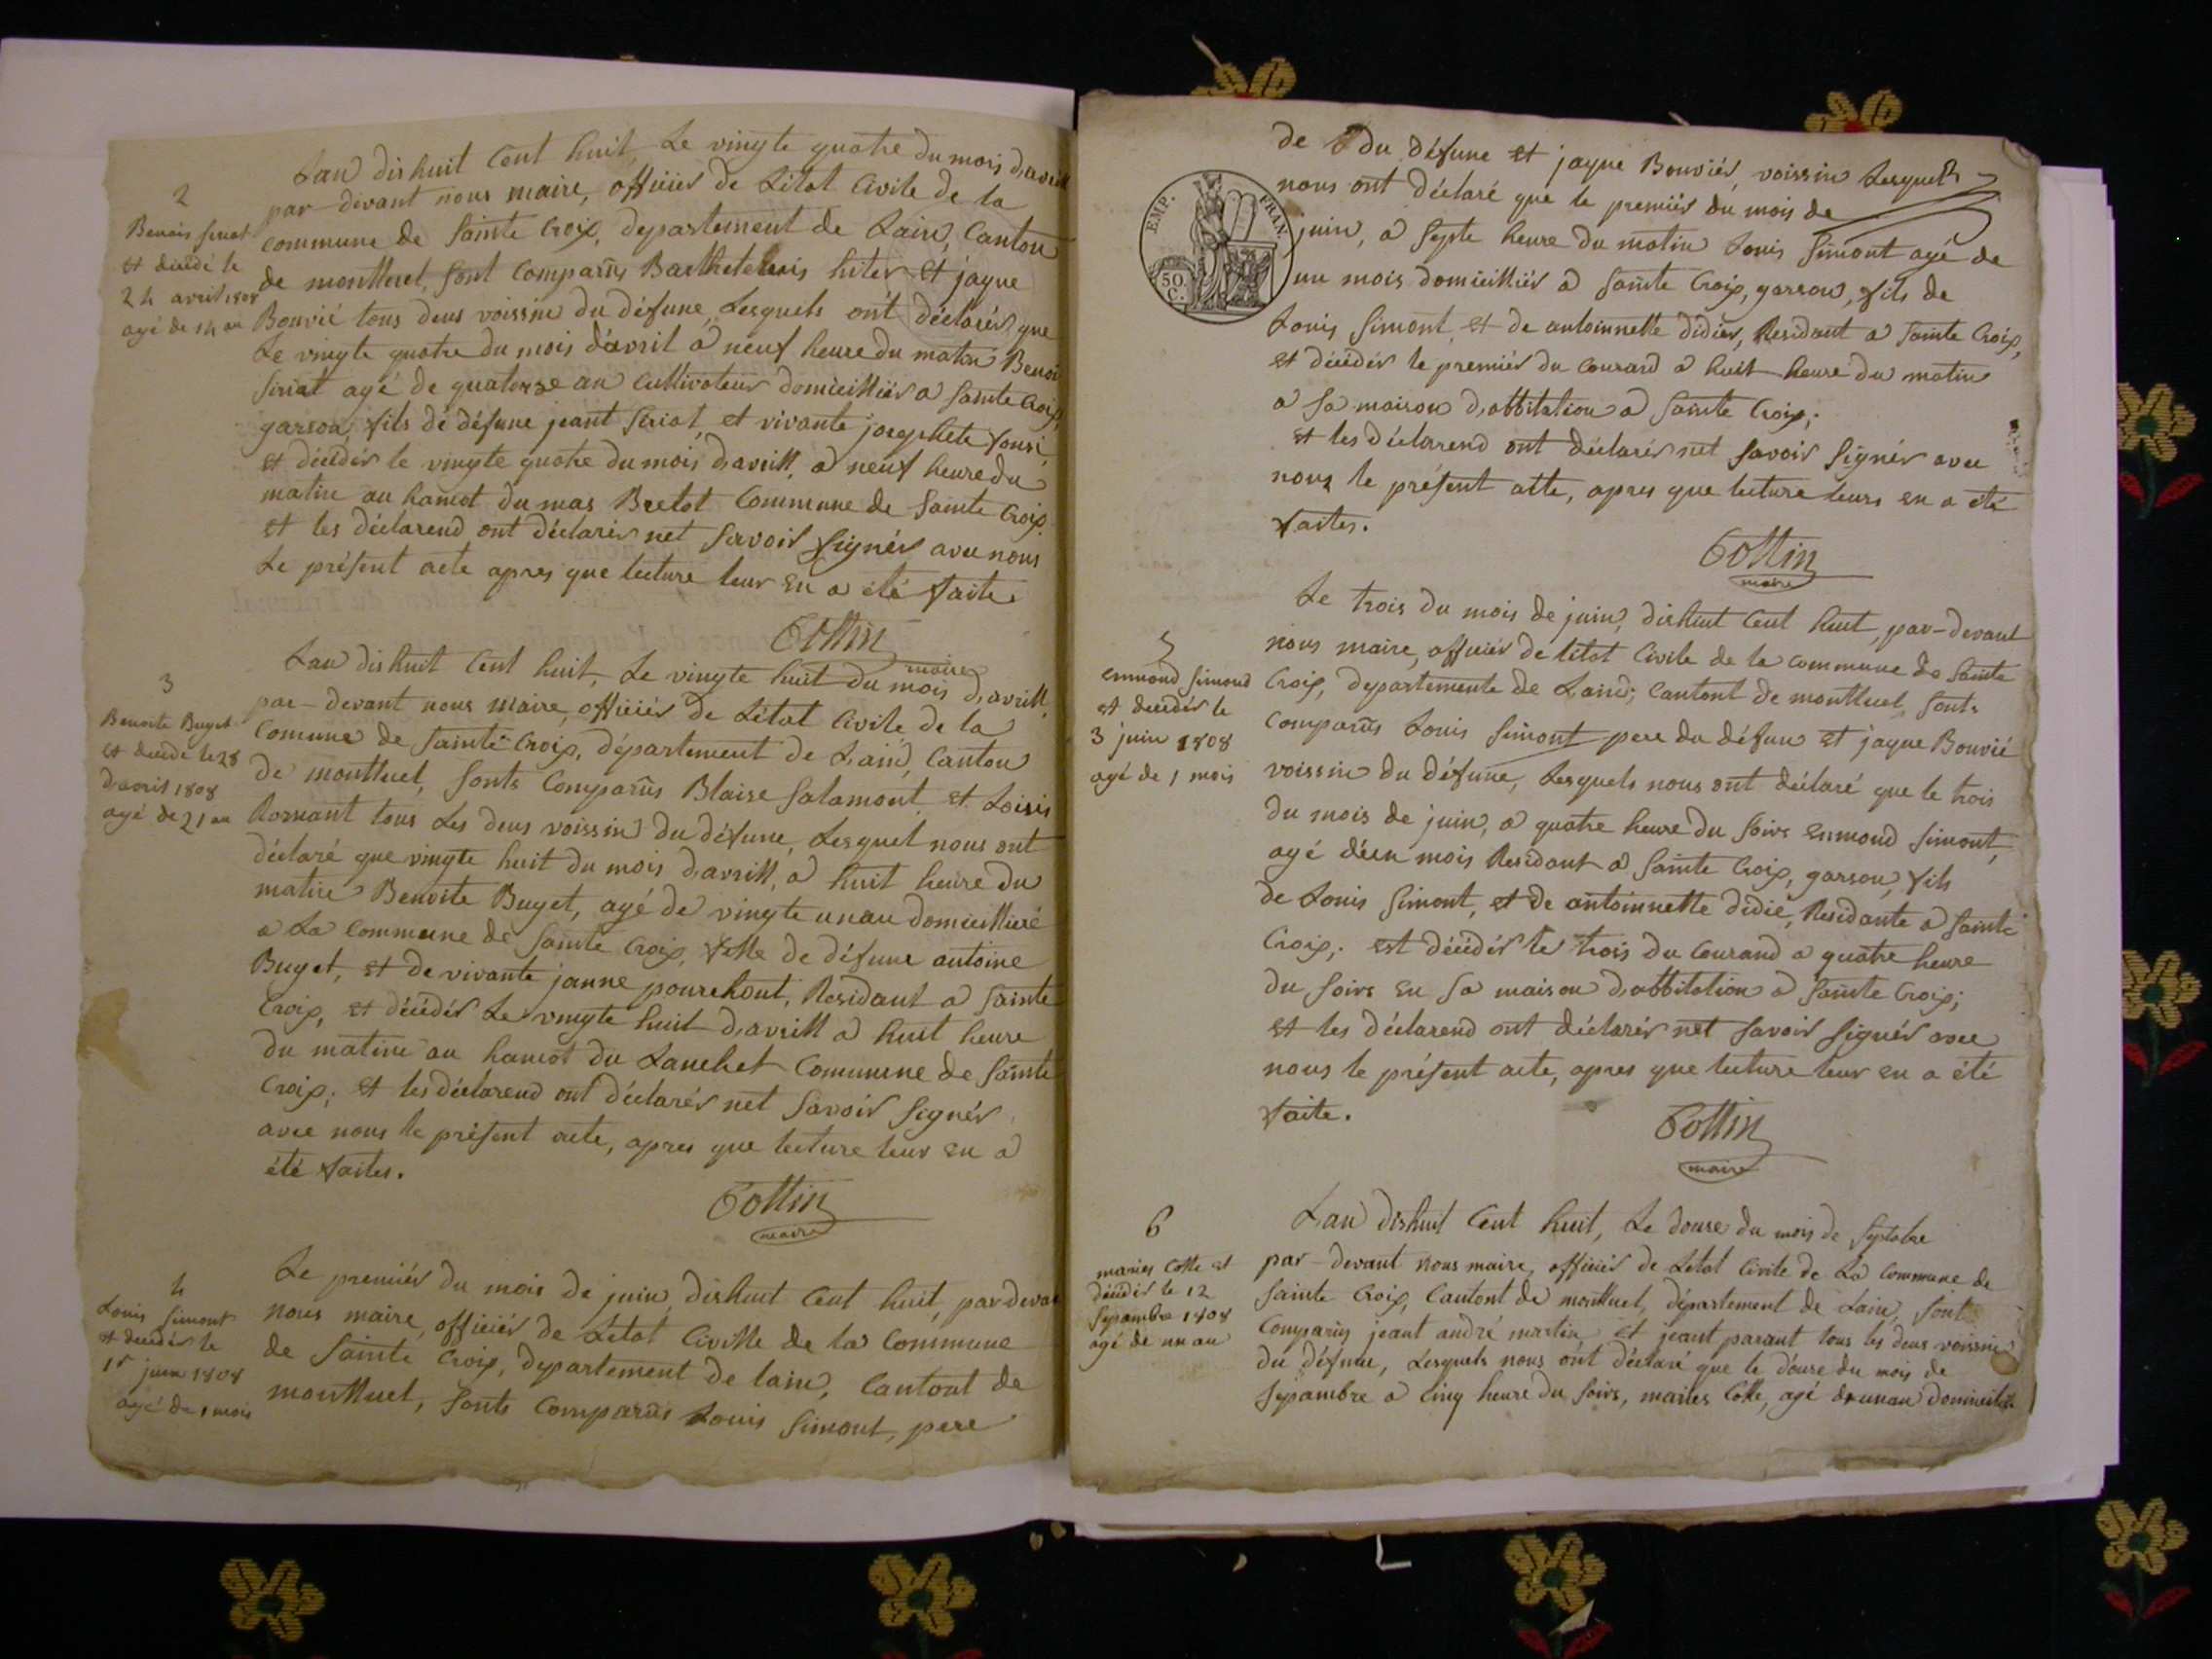 2
Benois siriat
et décédé le
24 avril 1808
agé de 14 an
Lan dishuit Cent huit, Le vingte quatre du mois d,avrill
par-devant nous maire, officier de Létat Civile de la
Commune de Sainte Croix, departement de Lain, Canton
de montluel, sont Comparûs et jaque
Bouvié tous deus voissin du défune, Lesquels ont déclarér que
Le vingte quatre du mois d'avril a neuf heure du matin Benois
siriat agé de quatorse an Cultivateur domicilliér a Sainte Croix,
garson, fils de défune jeant siriat, et vivante josephete
et décédér le vingte quatre du mois d,avrill, a neuf heure du
matin au hamot du mas Bretot Commune de Sainte Croix.
et les déclarend ont déclarér net savoir signér avec nous
Le présent acte apres que lecture leur en a été faite.
Cottin
maire
3
Benoite Buget
et décédé le 28
d,avril 1808
agé de 21 an
Lan dishuit Cent huit, Le vingte huit du mois d,avrill,
par-devant nous maire, officiér de Létat Civile de la
Comune de Sainte Croix, département de Lain, Canton
de montluel, sonts Comparûs Blaise Salamont et Loisis
tous Les deus voissin du défune, Lesquel nous ont
déclaré que vingte huit du mois d,avrill, a huit heure du
matin Benoite Buget, agé de vingte un an domicilliéré
a La Commune de Sainte Croix, fille de défune antoine
Buget, et de vivante janne pourchont, Residant a Sainte
Croix, et décédér Le vingte huit d,avrill a huit heure
du matine au hamot du Lanchet Commune de Sainte
Croix; et les déclarend ont déclarér net Savoir signér
avec nous le présent acte, apres que lecture leur en a
été faites.
Cottin
maire
4
Louis Simont
et décédér le
1r juin 1808
agé de 1 mois
Le premiér du mois de juin, dishuit Cent huit, par devant
nous maire, officiér de Létat Civille de la Commune
de Sainte Croix, departement de lain, Cantont de
montluel, sonts Comparûs Louis Simont, pere
de du défune et jaque Bouviér, voissin Lesquel
nous ont déclaré que le premiér du mois de
juin, a septe heure du matin Louis Simont agé de
un mois domicilliér a Sainte Croix, garson, fils de
Louis Simont, et de antoinnette didier, Residant a Sainte Croix,
et décédér le premiér du Courand a huit heure du matin
a sa maison d,abbitation a Sainte Croix;
et les déclarend ont déclarér net savoir signér avec
nous le présent atte, apres que lecture leurs en a été
faites.
EMP. FRAN.
50 C.
Cottin
maire
5
enmond simond
et décédér le
3 juin 1808
agé de 1 mois
Le trois du mois de juin, dishuit Cent huit, par-devant
nous maire, officiér de létat Civile de la commune de Sainte
Croix, departemente de Lain; Cantont de montluel, sonts
Comparûs Louis Simont pere du défun et jaque Bouvié
voissin du défune, Lesquels nous ont déclaré que le trois
du mois de juin, a quatre heure du soirs enmond simont,
agé déun mois Residant a Sainte Croix, garson, fils
de Louis Simont, et de antoinnette didié, Residante a Sainte
Croix; est décédér le trois du Courand a quatre heure
du soirs en sa maison d,abbitation a Sainte Croix;
et les déclarend ont déclarér net savoir signér avec
nous le présent acte, apres que lecture leur en a été
faite.
Cottin
maire
6
maries Cotte et
décédér le 12
sepambre 1808
agé de un an
Lan dishuit Cent huit, Le douse du mois de
par-devant nous maire, officiér de Létat Civile de La Commune de
Sainte Croix, Cantont de montluel, département de Lain, sont
Comparûs jeant andré martin et jeant parant tous les deus voissin
du défune, Lesquels nous ont déclaré que le douse du mois de
sepambre a Cinq heure du soirs, maries Cotte, agé de un an